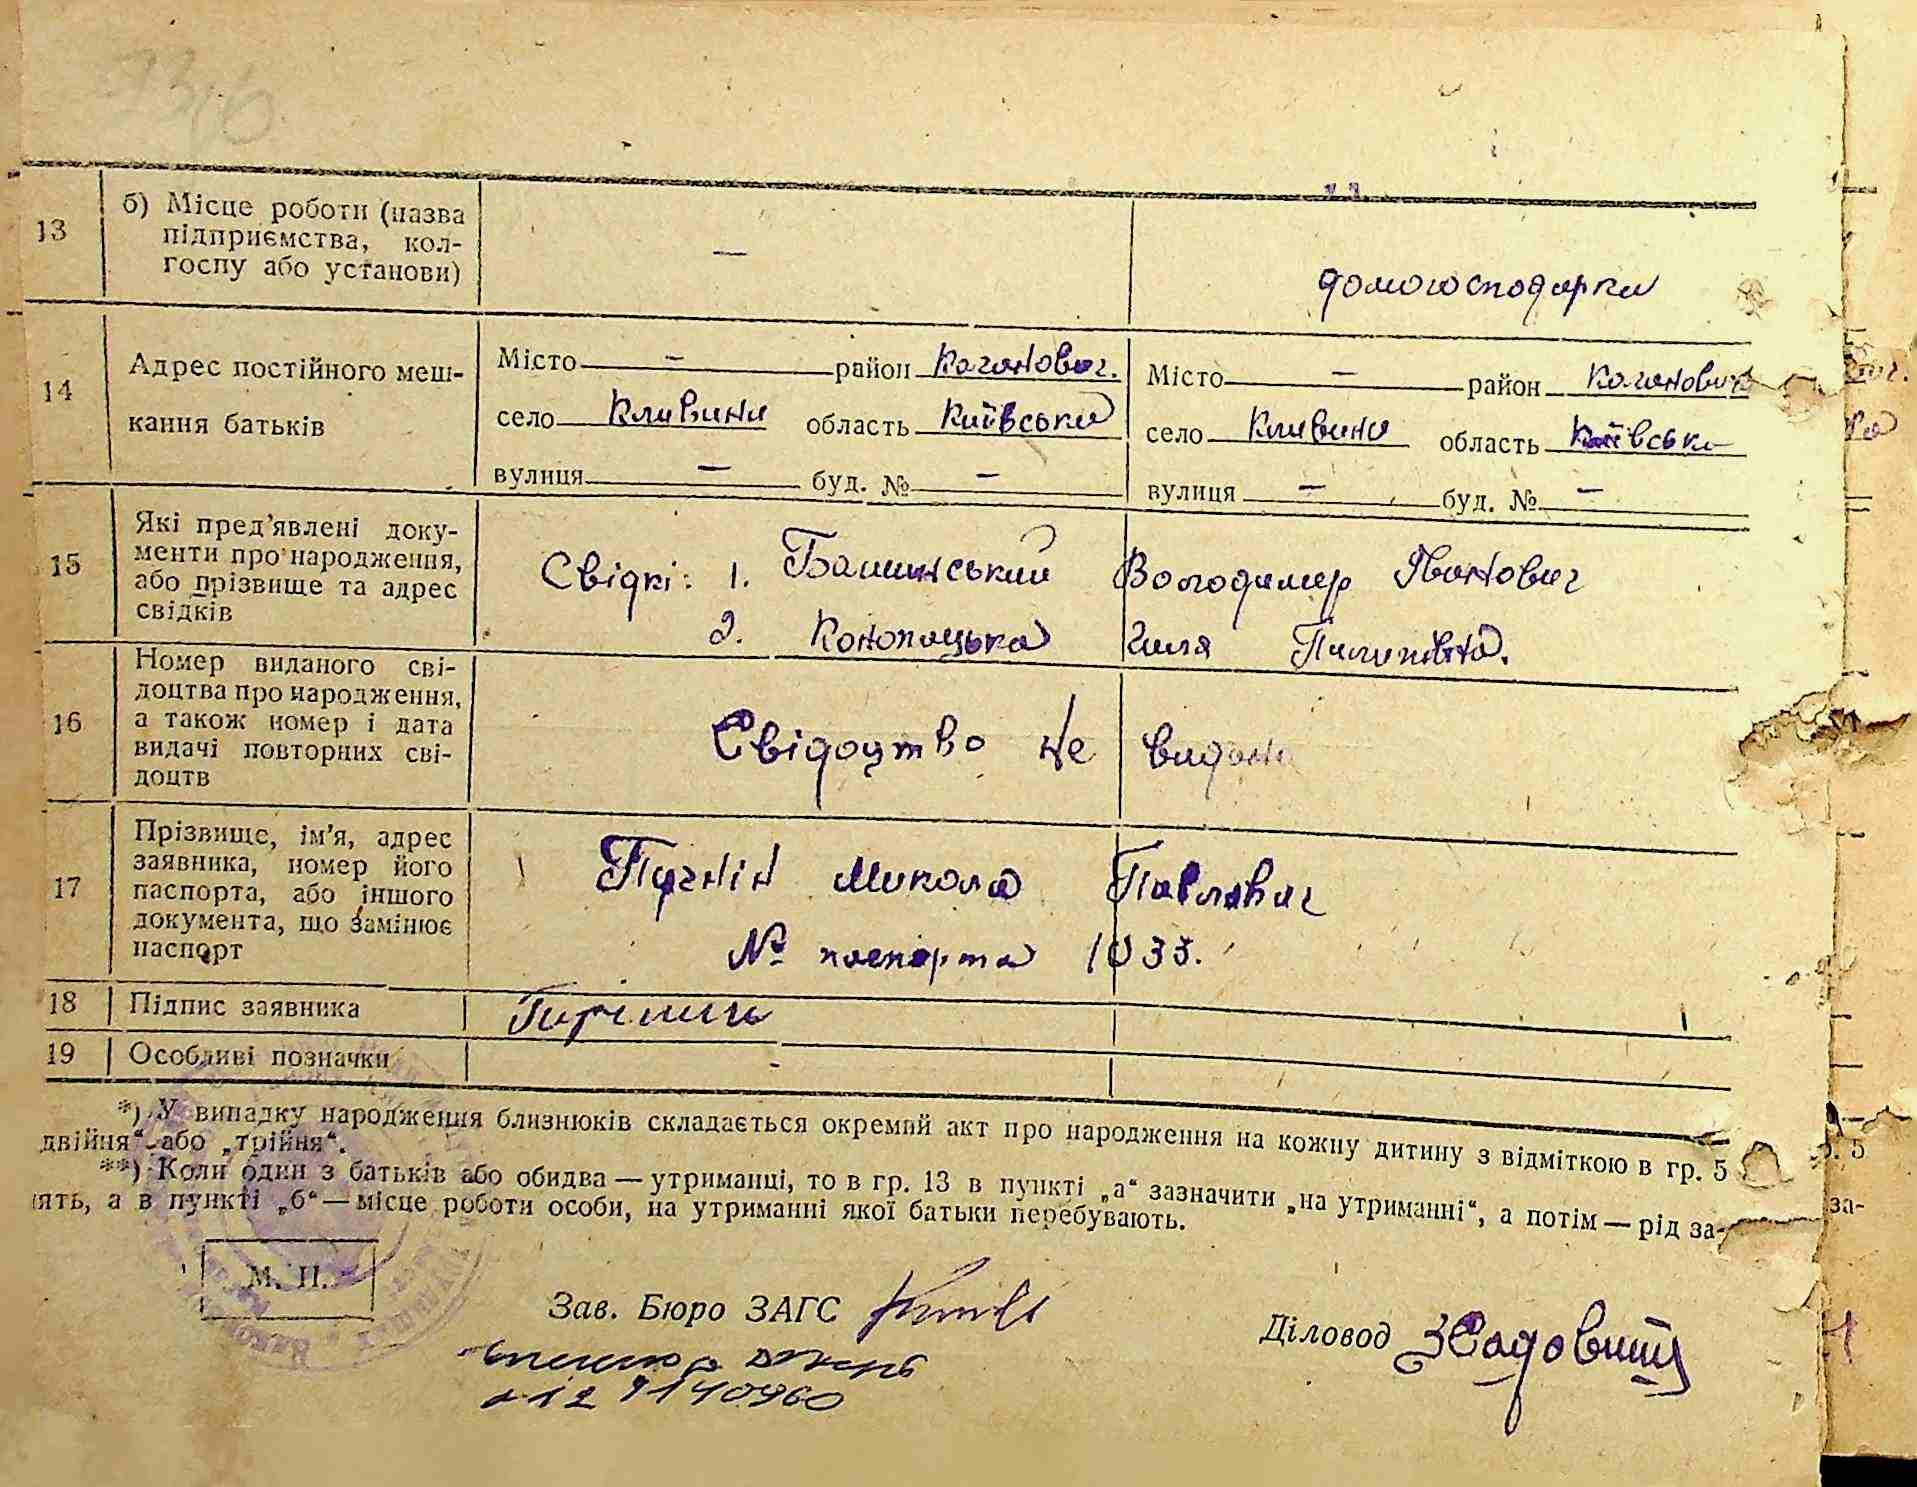 13 б) Місце роботи (назва підприємства, колгоспу або установи) — домогосподарка
14 Адрес постійного мешкання батьків
Місто — район Каганович. Місто — район Каганович
село Кливини область Київська село Кливини область Київська
вулиця — буд. № — вулиця — буд. № —
15 Які пред'явлені документи про народження, або прізвище та адрес свідків
Свідкі: 1. Володимир Іванович
2. Конопацька Пилипівна.
16 Номер виданого свідоцтва про народження, а також номер і дата видачі повторних свідоцтв
Свідоцтво не видано
17 Прізвище, ім'я, адрес заявника, номер його паспорта, або іншого документа, що замінює паспорт
Микола Павлович
№ паспорта 1033.
18 Підпис заявника
19 Особливі позначки
*) У випадку народження близнюків складається окремий акт про народження на кожну дитину з відміткою в гр. 5
двійня“ або „трійня“.
**) Коли один з батьків або обидва — утриманці, то в гр. 13 в пункті „а“ зазначити „на утриманні“, а потім — рід за-
ять, а в пункті „б“ — місце роботи особи, на утриманні якої батьки перебувають.
М. П.
Зав. Бюро ЗАГС
Діловод